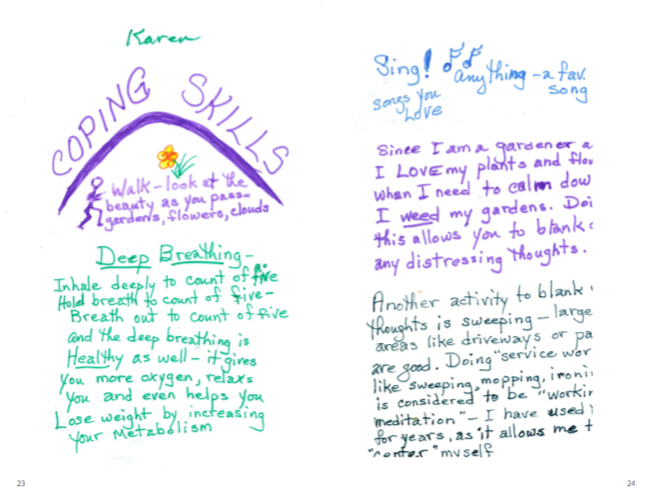 Karen
COPING SKILLS
Walk - look at the
beauty as you pass -
gardens, flowers, clouds
Deep Breathing -
Inhale deeply to count of five
Hold breath to count of five -
Breath out to count of five
and the deep breathing is
Healthy as well - it gives
you more oxygen, relaxs
you and even helps you
Lose weight by increasing
your Metabolism
23
Sing! anything - a fav.
song
songs you
LOVE
Since I am a gardener a
I LOVE my plants and flo
when I need to calm dow
I weed my gardens. Doi
this allows you to blank
any distressing thoughts.
Another activity to blank
thoughts is sweeping - large
areas like driveways or pa
are good. Doing "service wor
like sweeping, mopping, ironi
is considered to be "workin
meditation" - I have used
for years, as it allows me t
"center" myself
24